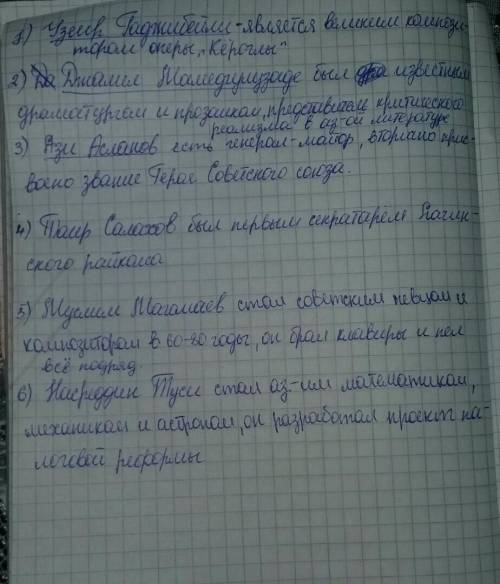 1) Узеир Гаджибейли - является великим компози-
тором оперы „Кероглы"
2) Джамил Мамедкулизаде был известным
драматургом и прозаиком, представителем критического
реализма в аз-ой литературе
3) Ази Асланов есть генерал-майор, вторично прис-
воено звание Героя Советского союза.
4) Таир Салахов был первым секратарём Лачин-
ского райкома
5) Муслим Магомаев стал советским певцом и
композитором в 60-80 годы, он брал клавиры и пел
всё подряд.
6) Насреддин Туси стал аз-им математиком,
механиком и астроном, он разработал проект на-
логовой реформы